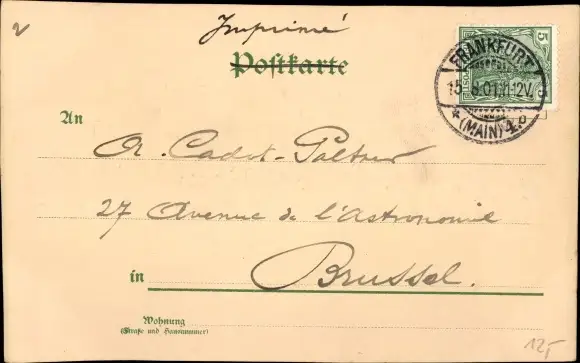 2
Imprimé
Postkarte
5
FRANKFURT
15. 8.01.11-12V.
* (MAIN) 1.
An
A. Cadet-
27 Avenue de l'Astronomie
in
Brussel.
Wohnung
(Straße und Hausnummer)
12,-